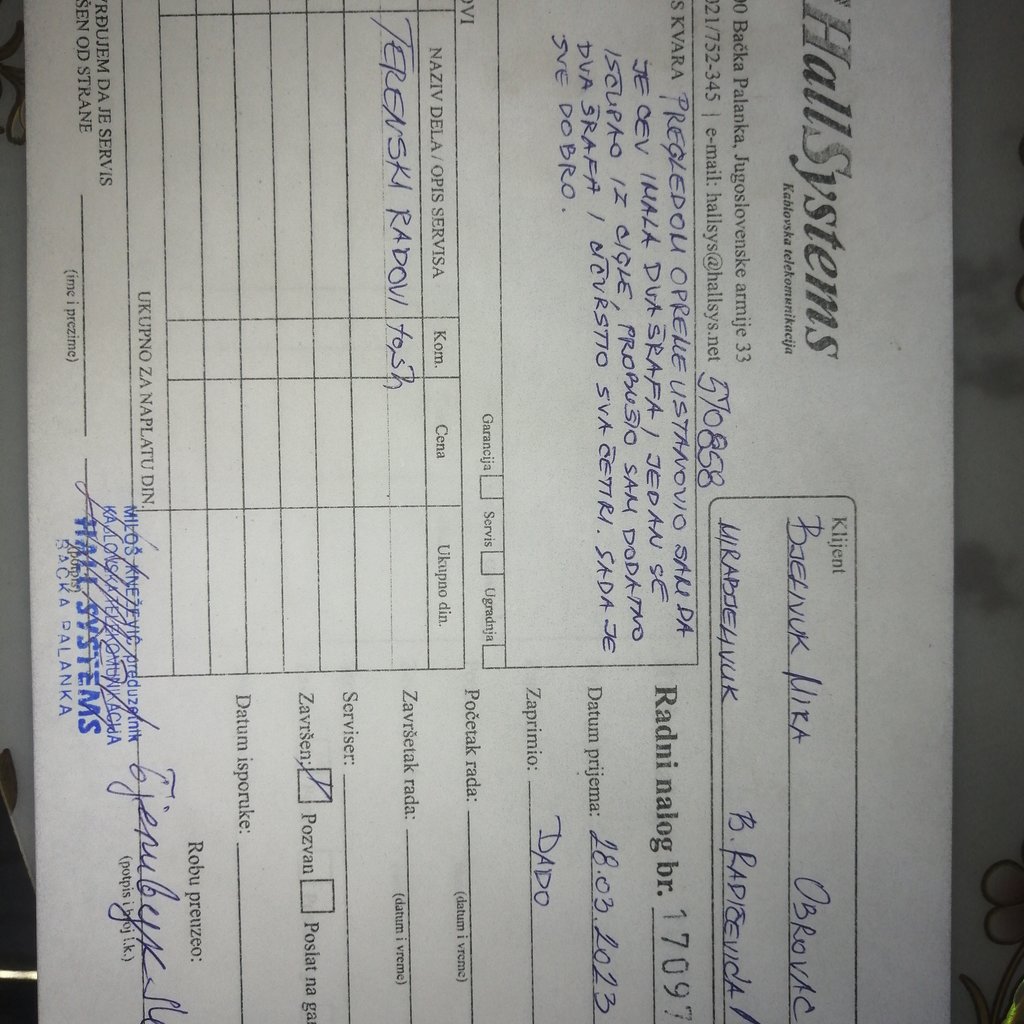 HallSystems
Kablovska telekomunikacija
00 Bačka Palanka, Jugoslovenske armije 33
021/752-345 | e-mail: hallsys@hallsys.net
570858
Klijent
BJELIVUK MIKA OBROVAC
MIRABJELIVUK B. RADIČEVIĆA
S KVARA PREGLEDOM OPREME USTANOVIO SAM DA
JE CEV IMALA DVA ŠRAFA I JEDAN SE
IŠČUPAO IZ CIGLE, PROBUŠIO SAM DODATNO
DVA ŠRAFA I UČVRSTIO SVA ČETIRI. SADA JE
SVE DOBRO.
Garancija Servis Ugradnja
OVI
NAZIV DELA / OPIS SERVISA Kom. Cena Ukupno din.
TERENSKI RADOVI
UKUPNO ZA NAPLATU DIN.
Radni nalog br. 17097
Datum prijema: 28.03.2023
Zaprimio: DADO
Početak rada:
(datum i vreme)
Završetak rada:
(datum i vreme)
Serviser:
Završen: Pozvan Poslat na ga
Datum isporuke:
Robu preuzeo:
(potpis i broj l.k.)
RĐUJEM DA JE SERVIS
ŠEN OD STRANE
(ime i prezime)
(potpis)
MILOŠ KNEŽEVIĆ preduzetnik
KABLOVSKA TELEKOMUNIKACIJA
HALL SYSTEMS
BAČKA PALANKA